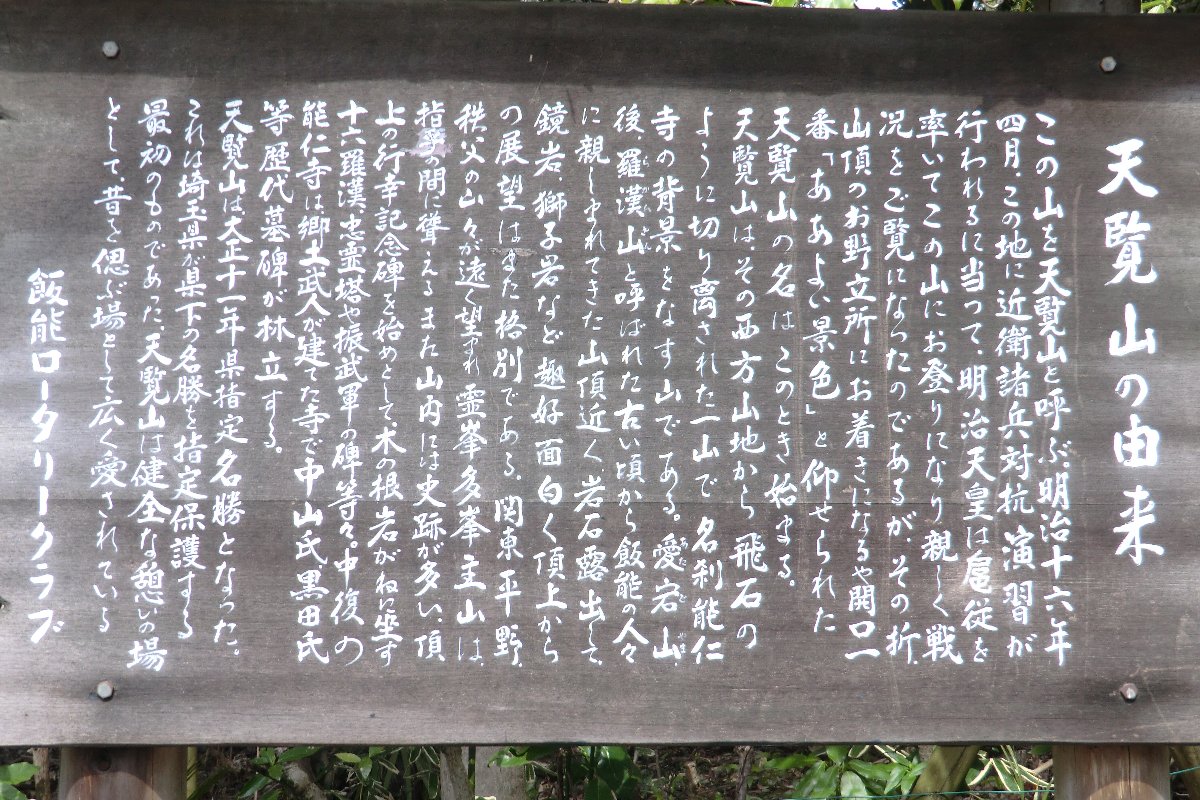 天覧山の由来
この山を天覧山と呼ぶ。明治十六年
四月、この地に近衛諸兵対抗演習が
行われるに当って、明治天皇は扈従を
率いてこの山にお登りになり親しく戦
況をご覧になったのであるが、その折、
山頂のお野立所にお着きになるや開口一
番「ああよい景色」と仰せられた
天覧山の名はこのとき始まる。
天覧山はその西方山地から飛石の
ように切り離された一山で名刹能仁
寺の背景をなす山である。愛宕山、
後羅漢山と呼ばれた古い頃から飯能の人々
に親しまれてきた山頂近く、岩石露出して、
鏡岩、獅子岩など趣好面白く頂上から
の展望はまた格別である。関東平野、
秩父の山々が遠く望まれ霊峯多峯主山は、
指呼の間に聳えるまた山内には史跡が多い、頂
上の行幸記念碑を始めとして、木の根岩がねに坐す
十六羅漢、忠霊塔や振武軍の碑等々。中復の
能仁寺は郷土武人が建てた寺で中山氏、黒田氏
等歴代墓碑が林立する。
天覧山は、大正十一年県指定名勝となった。
これは埼玉県が県下の名勝を指定保護する
最初のものであった、天覧山は健全な憩いの場
として、昔を偲ぶ場として広く愛されている
飯能ロータリークラブ